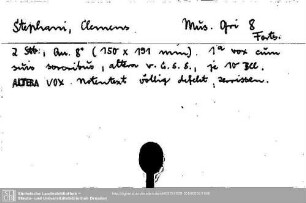 Stephani, Clemens. Mus. Gri 8
Forts.
2 Stb., qu. 8° (150 x 191 mm). 1ª vox cum
suis sororibus, altera v. G.S.S., je 10 Bll.
ALTERA VOX. Notentext völlig defekt, zerrissen.
Sächsische Landesbibliothek -
Staats- und Universitätsbibliothek Dresden